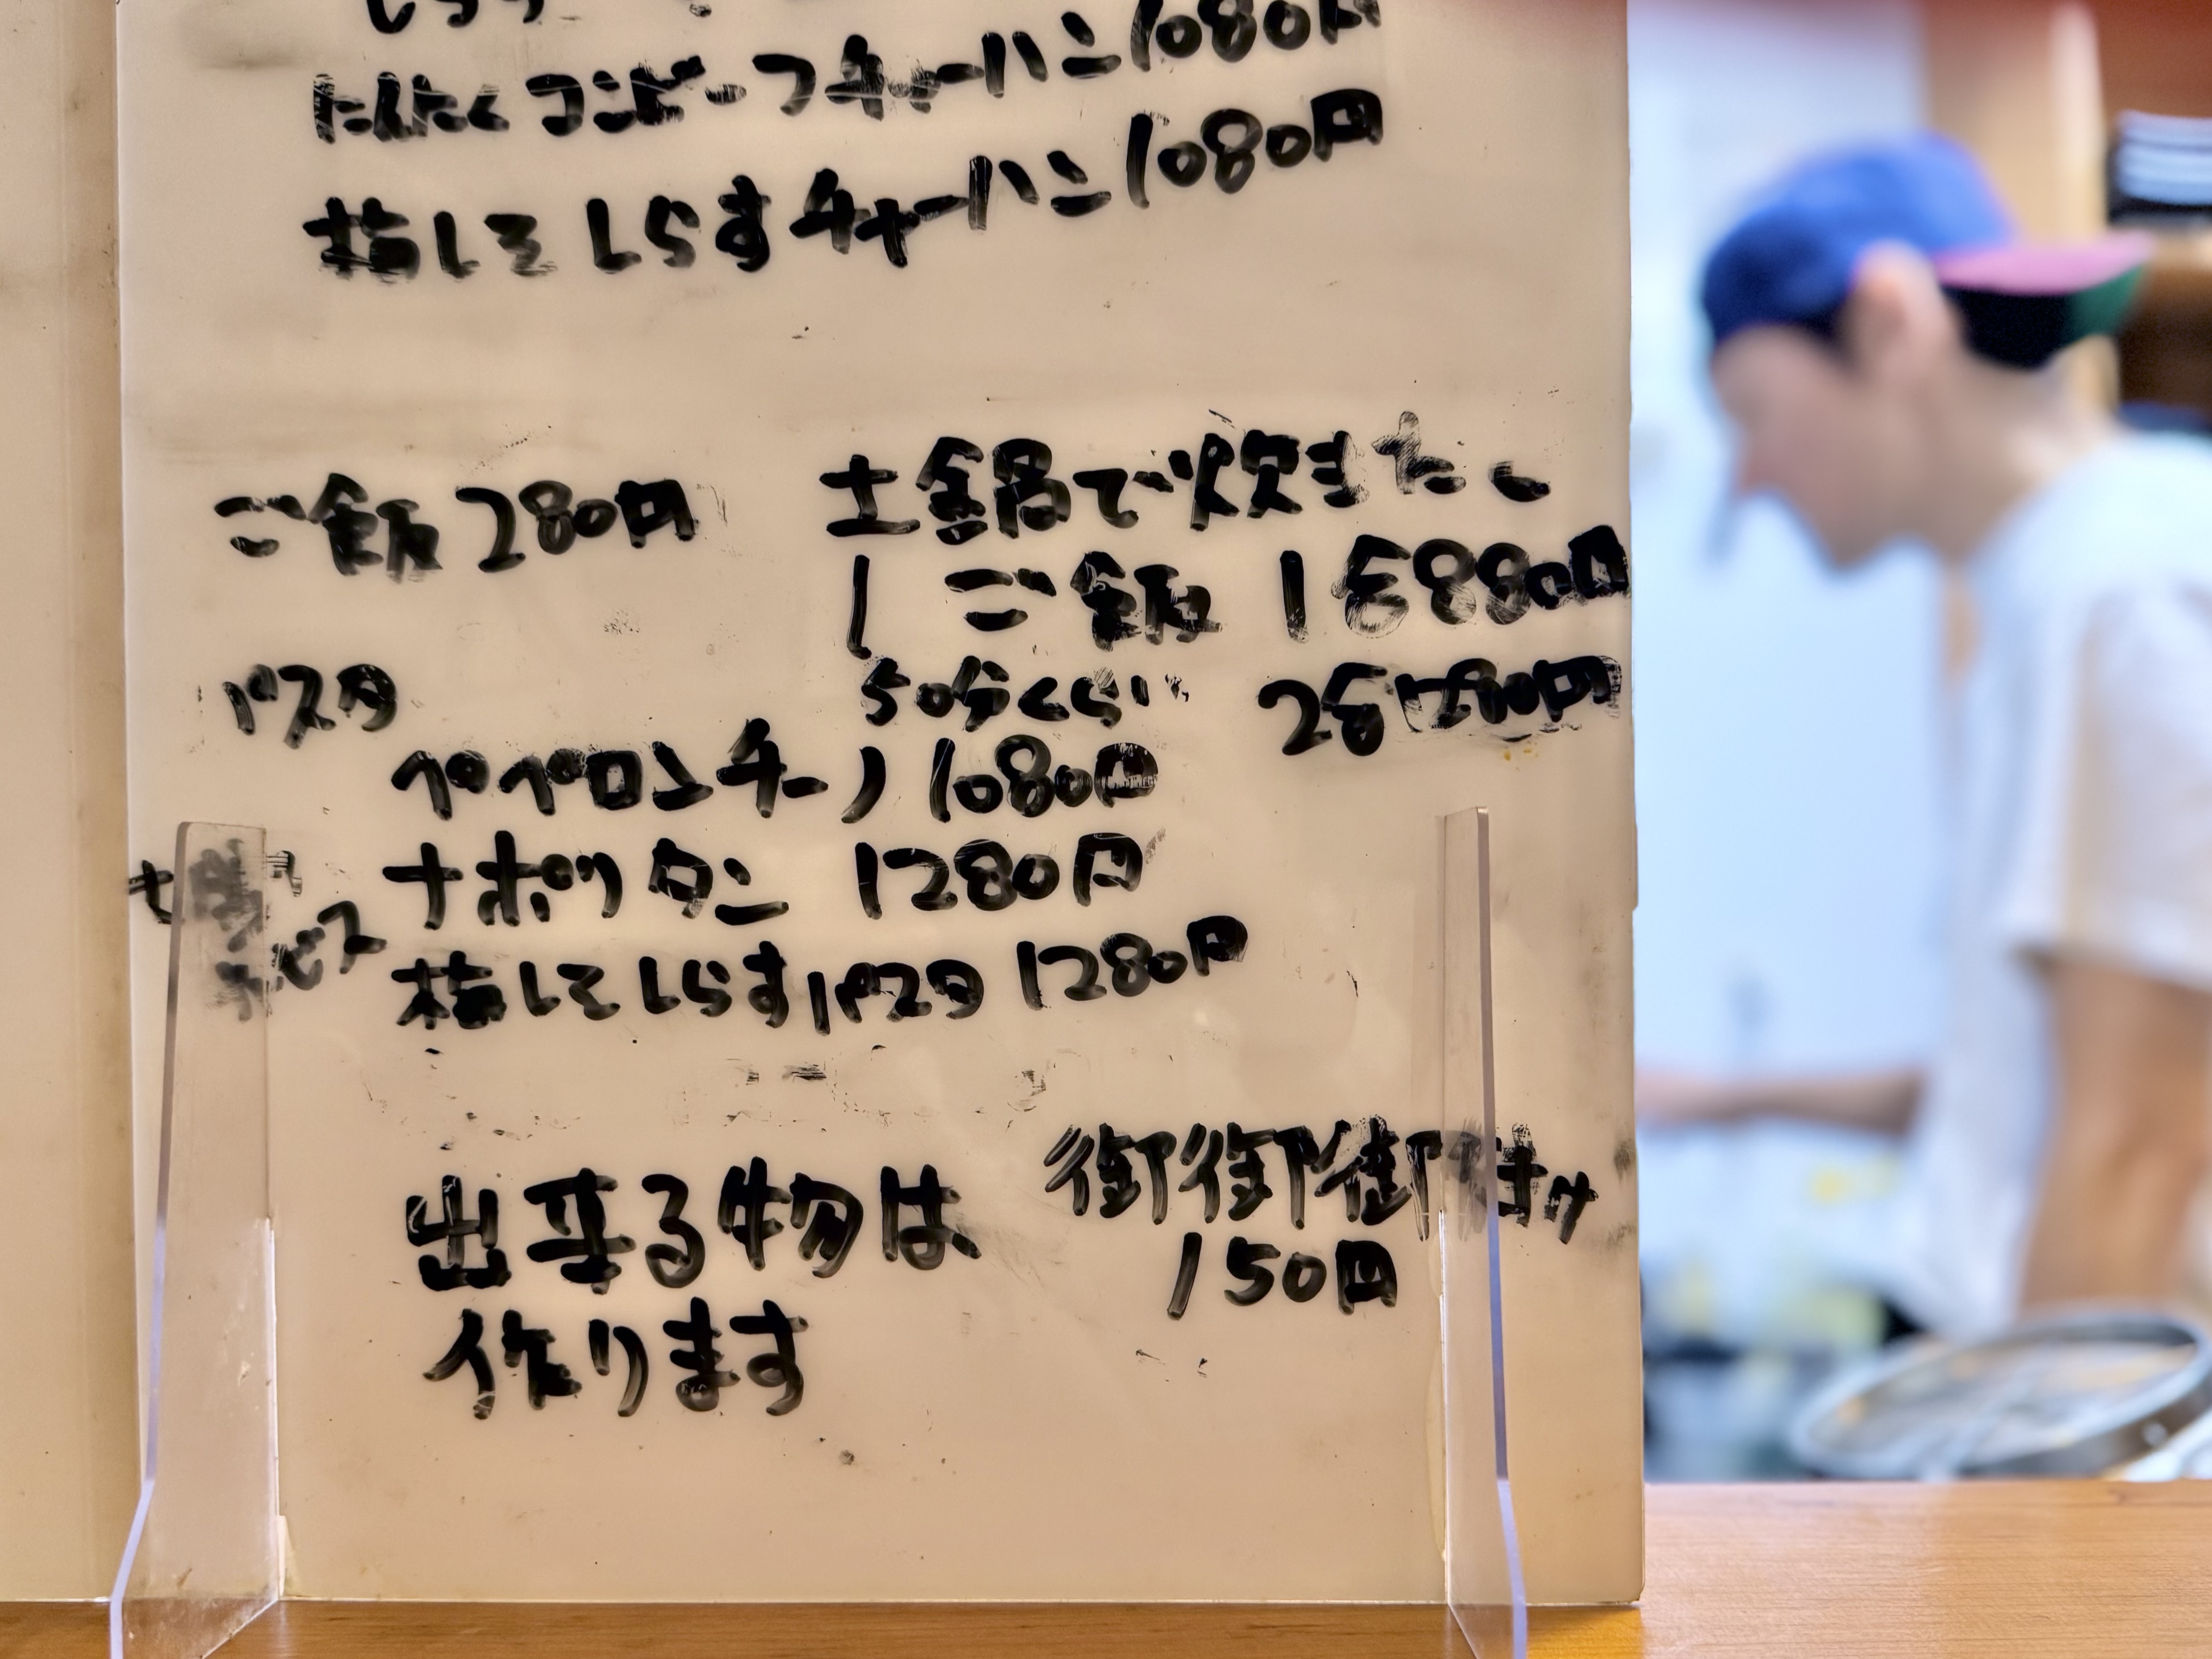 にんにくコンビーフチャーハン1080円
梅しそしらすチャーハン1080円
ご飯 280円
土鍋で炊きたし
ご飯 1合880円
50分くらい
2合
パスタ
ペペロンチーノ 1080円
ナポリタン 1280円
梅しそしらすパスタ 1280円
出来る物は
作ります
御御御
150円